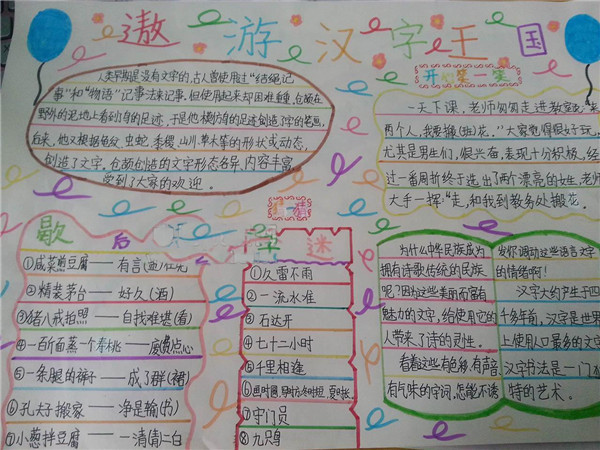 遨游汉字王国
人类早期是没有文字的,古人曾使用过“结绳记
事”和“物语”记事法来记事.但使用起来却困难重重,仓颉在
野外的足地上看到鸟的足迹.于是他模仿鸟的足迹创造了字的笔画,
后来,他又根据龟纹、虫蛇、季稷、山川、草木等的形状或动态,
创造了文字.仓颉创造的文字形态各异、内容丰富,
受到了大家的欢迎.
开心笑一笑
一天下课,老师匆匆走进教室说:来
两个人,我要搬(班)花。”大家觉得很好玩,
尤其是男生们,很兴奋,表现十分积极,经
过一番周折终于选出了两个漂亮的女生.老师
大手一挥:“走,和我到教务处搬花。
歇后
①咸菜煎豆腐——有言(盐)在先
②精装茅台——好久(酒)
③猪八戒拍照——自找难堪(看)
④一百斤面蒸一个寿桃——废点心
⑤一条腿的裤子——成了群(裙)
⑥孔夫子搬家——净是输(书)
⑦小葱拌豆腐——一清二白
字迷
①久雷不雨
②一流水准
③石达开
④七十二小时
⑤千里相逢
⑦守门员
⑧九只鸟
为什么中华民族成为
拥有诗歌传统的民族
呢?因为这些美丽而富有
魅力的文字,给使用它的
人带来了诗的灵性。
看着这些有色彩,有声音
有气味的字词,怎能不诱
发你调动这些语言文字
的情绪啊!
汉字大约产生于四
千多年前,汉字是世界
上使用人口最多的文字
汉字书法是一门
特的艺术。